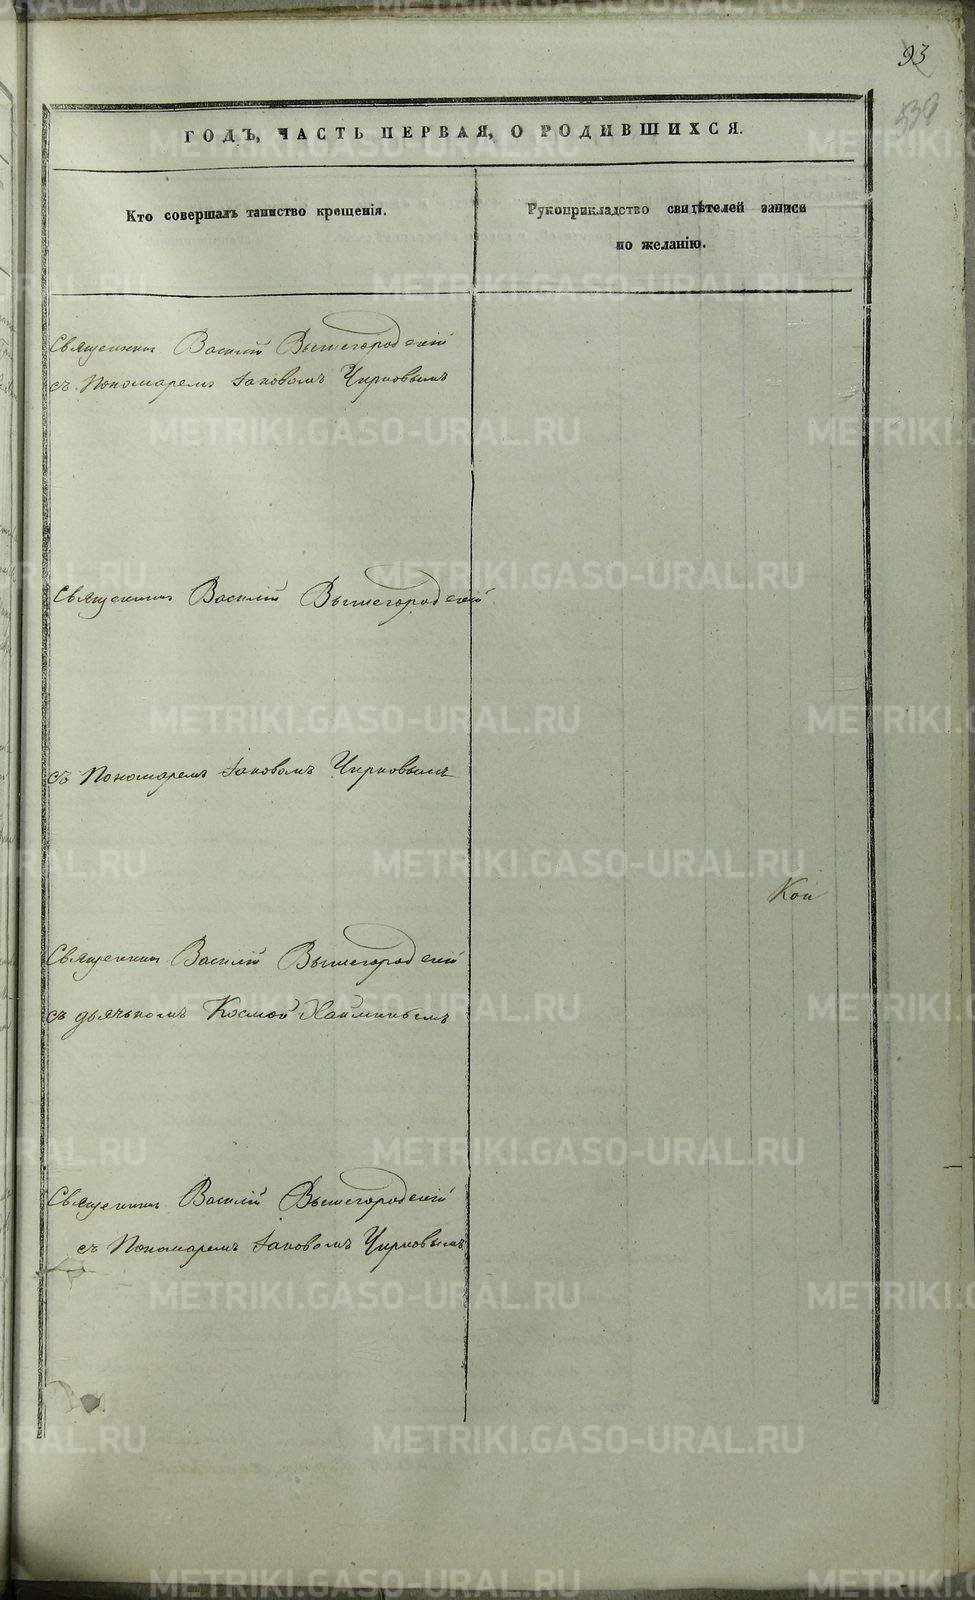 93
539
ГОДЪ, ЧАСТЬ ПЕРВАЯ, О РОДИВШИХСЯ.
Кто совершалъ таинство крещенія.
Рукоприкладство свидѣтелей записи
по желанію.
Священникъ Василій Вышегородскій
съ Пономаремъ Іаковомъ Чирковымъ
Священникъ Василій Вышегородскій
съ Пономаремъ Іаковомъ Чирковымъ
Кои
Священникъ Василій Вышегородскій
съ дьячькомъ Космой
Священникъ Василій Вышегородскій
съ Пономаремъ Іаковомъ Чирковымъ
METRIKI.GASO-URAL.RU